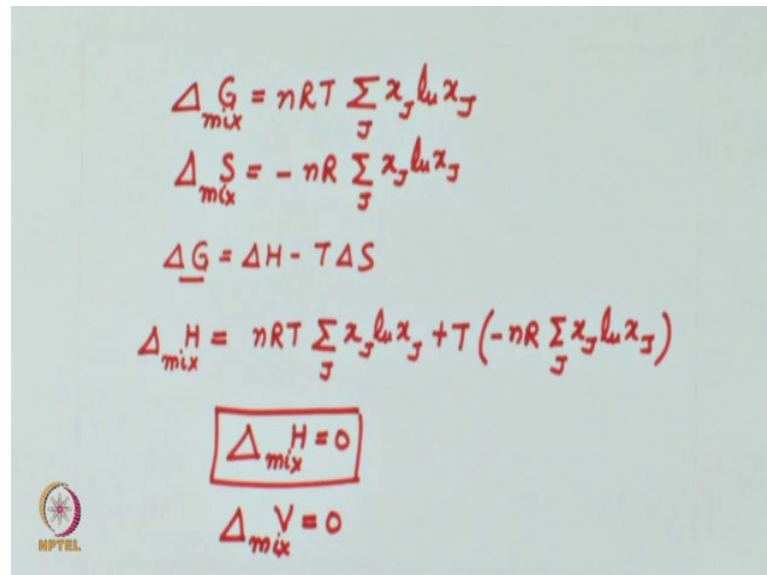 Δ_mix G = nRT Σ_J x_J ln x_J
Δ_mix S = - nR Σ_J x_J ln x_J
ΔG = ΔH - TΔS
Δ_mix H = nRT Σ_J x_J ln x_J + T(-nR Σ_J x_J ln x_J)
Δ_mix H = 0
Δ_mix V = 0
NPTEL